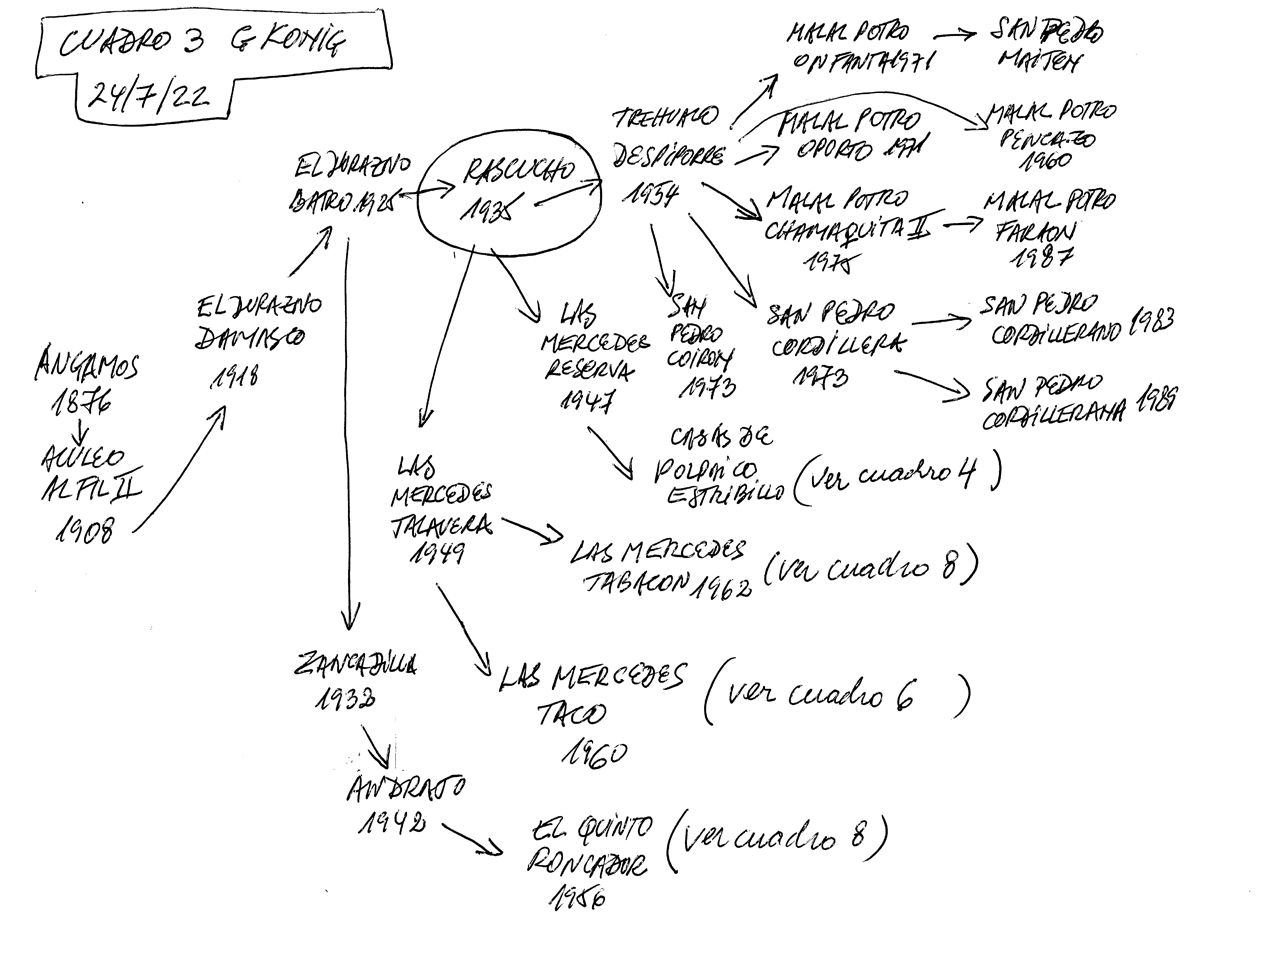 CUADRO 3 G KONIG
24/7/22
MALAL POTRO
ONFANTA 1971
SAN PEDRO
MAITEN
TREHUACO
DESPIPORRE
1954
MALAL POTRO
OPORTO 1971
MALAL POTRO
PENCAZO
1960
EL DURAZNO
BATRO. 1925
RASCUCHO
1935
MALAL POTRO
CHAMAQUITA II
1975
MALAL POTRO
FARAON
1987
EL DURAZNO
DAMASCO
1918
LAS
MERCEDES
RESERVA
1947
SAN
PEDRO
COIRON
1973
SAN PEDRO
CORDILLERA
1973
SAN PEDRO
CORDILLERANO 1983
SAN PEDRO
CORDILLERANA 1989
ANGAMOS
1876
ACULEO
ALFIL II
1908
LAS
MERCEDES
TALAVERA
1949
CASAS DE
POLPAICO
ESTRIBILLO (ver cuadro 4)
LAS MERCEDES
TABACON 1962 (ver cuadro 8)
ZANCADILLA
1932
LAS MERCEDES
TACO
1960
(ver cuadro 6)
ANDRAJO
1942
EL QUINTO
RONCADOR
1956
(ver cuadro 8)